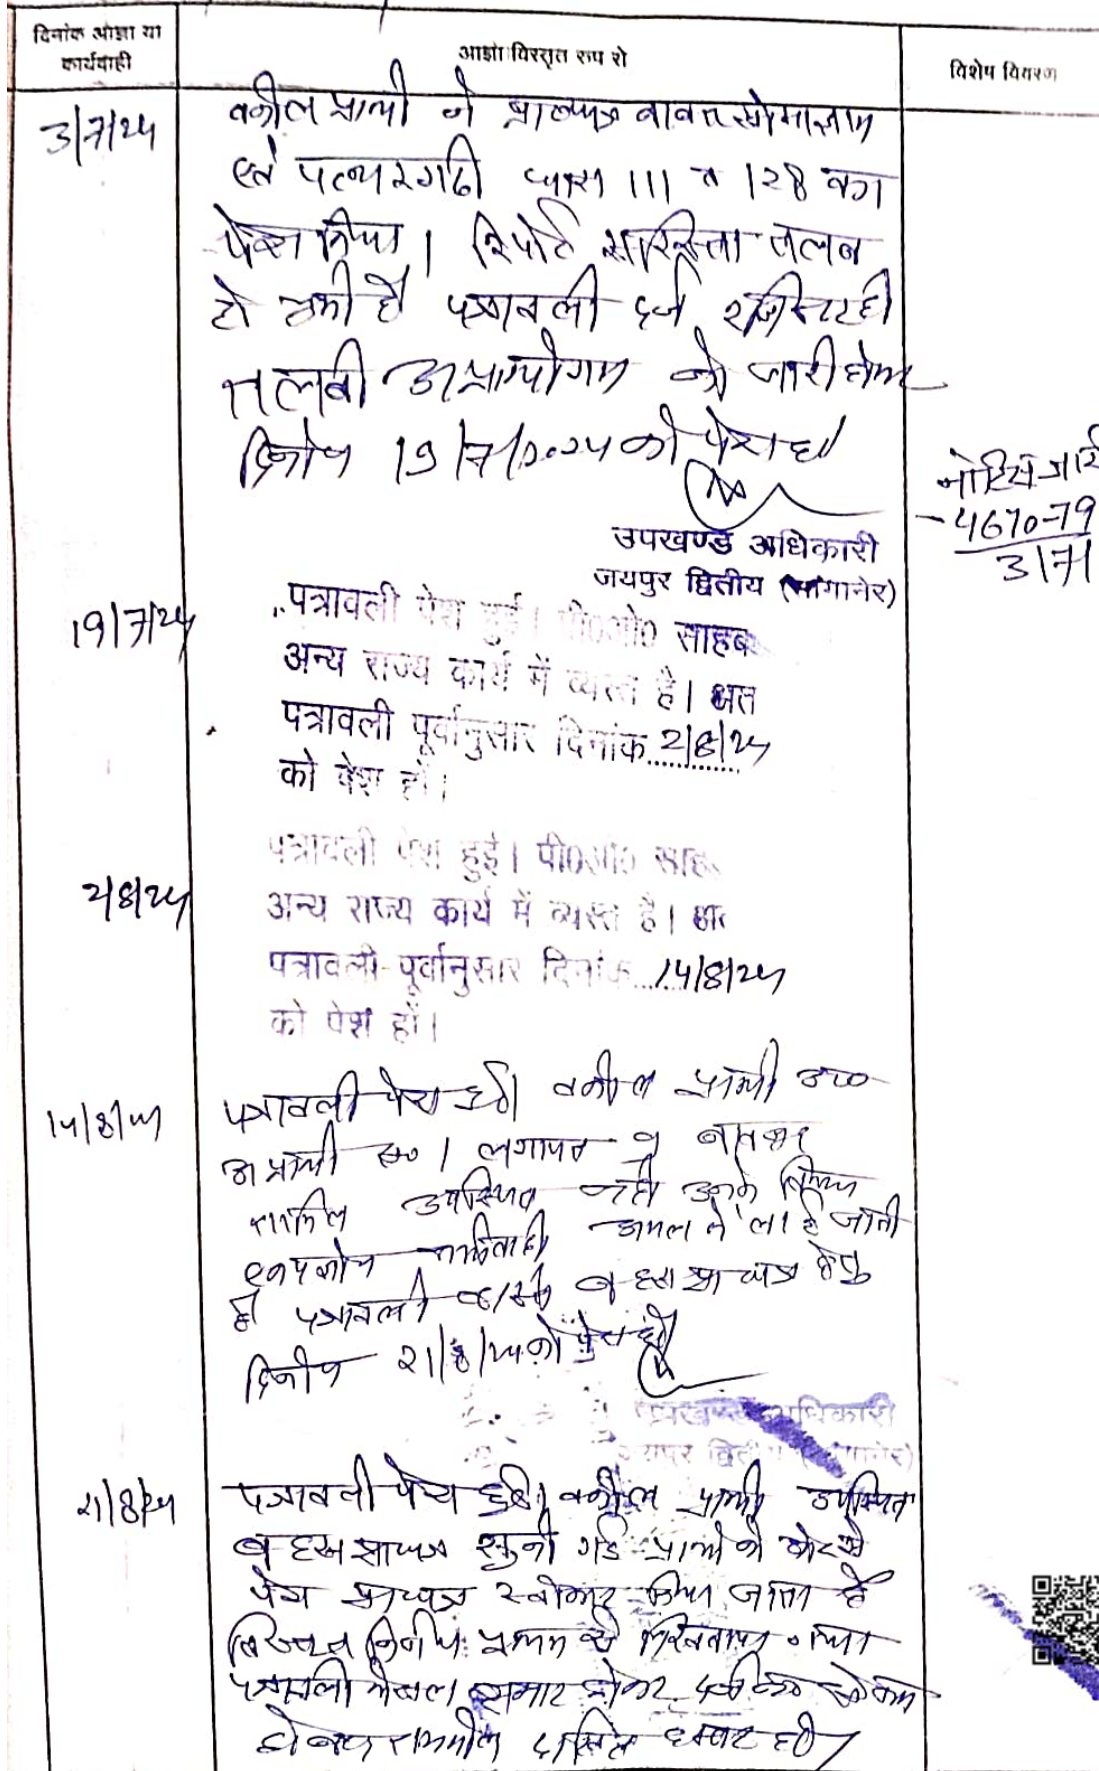 दिनांक आज्ञा या
कार्यवाही
आज्ञा विस्तृत रूप से
विशेष विवरण
3/7/24
वकील प्रार्थी ने प्रा०पत्र बाबत सीमाज्ञान
एवं पत्थरगढी धारा 111 व 128 का
पेश किया। रिपोर्ट सरिश्ता तलब
हो चुकी है पत्रावली दर्ज रजिस्टर हो
तलबी अप्रार्थीगण को जारी होकर
दिनांक 19/7/2024 को पेश हो
उपखण्ड अधिकारी
जयपुर द्वितीय (सांगानेर)
नोटिस जारी
4670-79
3/7/
19/7/24
पत्रावली पेश हुई। पी०ओ० साहब
अन्य राज्य कार्य में व्यस्त है। अत
पत्रावली पूर्वानुसार दिनांक 2/8/24
को पेश हों।
2/8/24
पत्रावली पेश हुई। पी०ओ० साह
अन्य राज्य कार्य में व्यस्त है। अत
पत्रावली पूर्वानुसार दिनांक 14/8/24
को पेश हों।
14/8/24
पत्रावली पेश हुई। वकील प्रार्थी उप०
अप्रार्थी सं० 1 लगायत 9 बावजूद
तामिल उपस्थित नहीं उनके विरूध
एकपक्षीय कार्यवाही अमल में लाई जाती
है पत्रावली बहस प्रा० पत्र हेतु
दिनांक 21/8/24 को पेश हो
उपखण्ड अधिकारी
जयपुर द्वितीय (सांगानेर)
21/8/24
पत्रावली पेश हुई। वकील प्रार्थी उपस्थित
बहस प्रा०पत्र सुनी गई प्रार्थी की ओर से
पेश प्रा०पत्र स्वीकार किया जाता है
विस्तृत निर्णय पृथक से लिखवाया गया
पत्रावली फैसल शुमार होकर नम्बर से कम
होकर तामील दाखिल दफ्तर हो